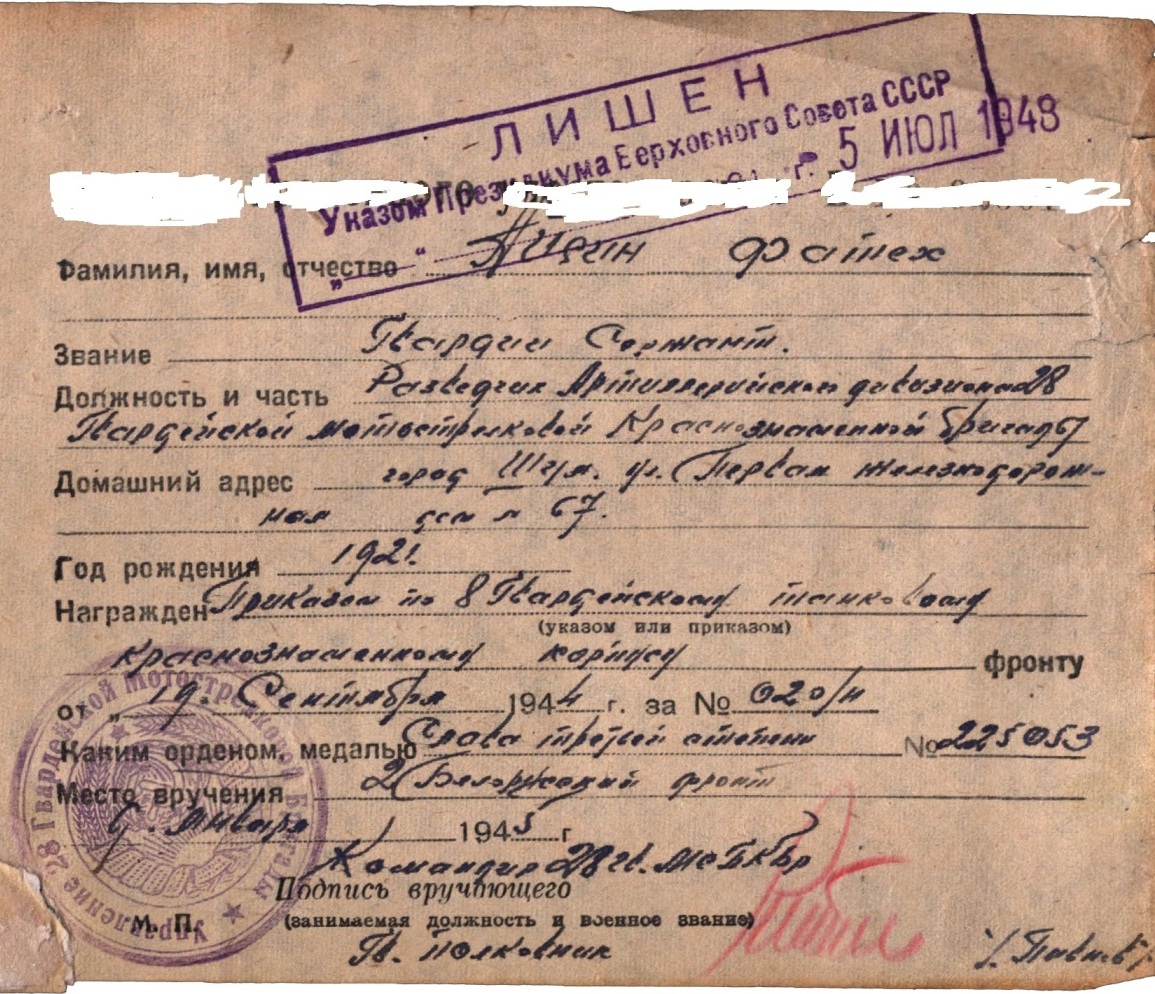 ЛИШЕН
Указом Президиума Верховного Совета СССР
5 ИЮЛ 1948
Фамилия, имя, отчество Фатех
Звание Гвардии Сержант.
Должность и часть Разведчик Артиллерийского дивизиона 28
Гвардейской мотострелковой Краснознаменной бригады
Домашний адрес город ул. Первая железнодорож-
ная дом № 67.
Год рождения 1921.
Награжден Приказом по 8 Гвардейскому танковому
(указом или приказом)
краснознаменному корпусу фронту
от „19. Сентября 1944 г. за № 020/н
Каким орденом, медалью Слава третьей степени № 225053
Место вручения 2 Белорусский фронт
9. Января 1945 г
Командир 28 гв. МсБКбр
Подпись вручающего
М. П. (занимаемая должность и военное звание)
Гв. полковник
Управление 28 Гвардейской Мотострелковой Бригады